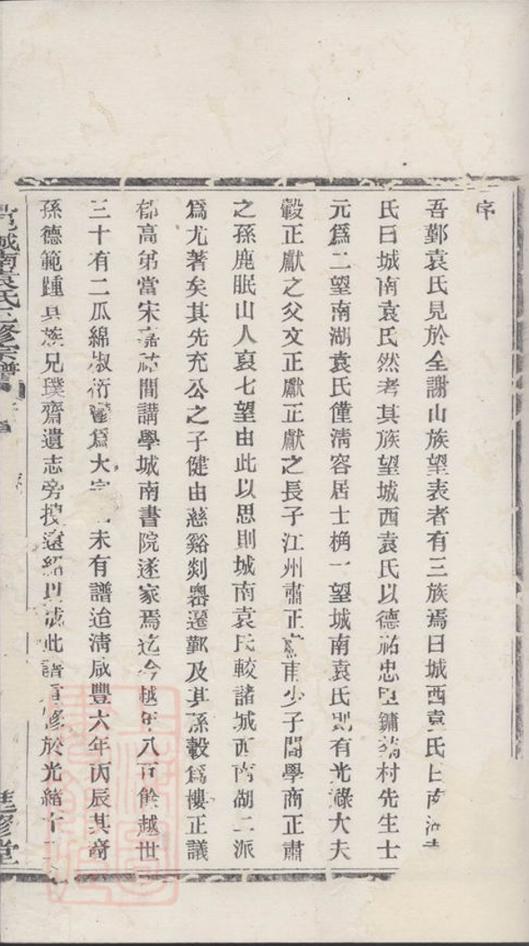 序
吾鄞袁氏見於全謝山族望表者有三族焉曰城西袁氏曰南湖袁
氏曰城南袁氏然考其族望城西袁氏以德祐忠臣鏞菊村先生士
元爲二望南湖袁氏僅淸容居士桷一望城南袁氏則有光祿大夫
轂正獻之父文正獻正獻之長子江州肅正憲甫少子閩學商正肅
之孫鹿眠山人裒七望由此以思則城南袁氏較諸城西南湖二派
爲尤著矣其先充公之子健由慈谿剡畧遷鄞及其孫轂爲樓正議
郁高弟當宋嘉祐間講學城南書院遂家焉迄今越年八百餘越世
三十有二瓜綿椒衍蔚爲大宗 未有譜迨淸咸豐六年丙辰其裔
孫德範踵其族兄璞齋遺志旁搜遠紹以成此譜重修於光緒十二
城南袁氏三修宗譜
序
進修堂